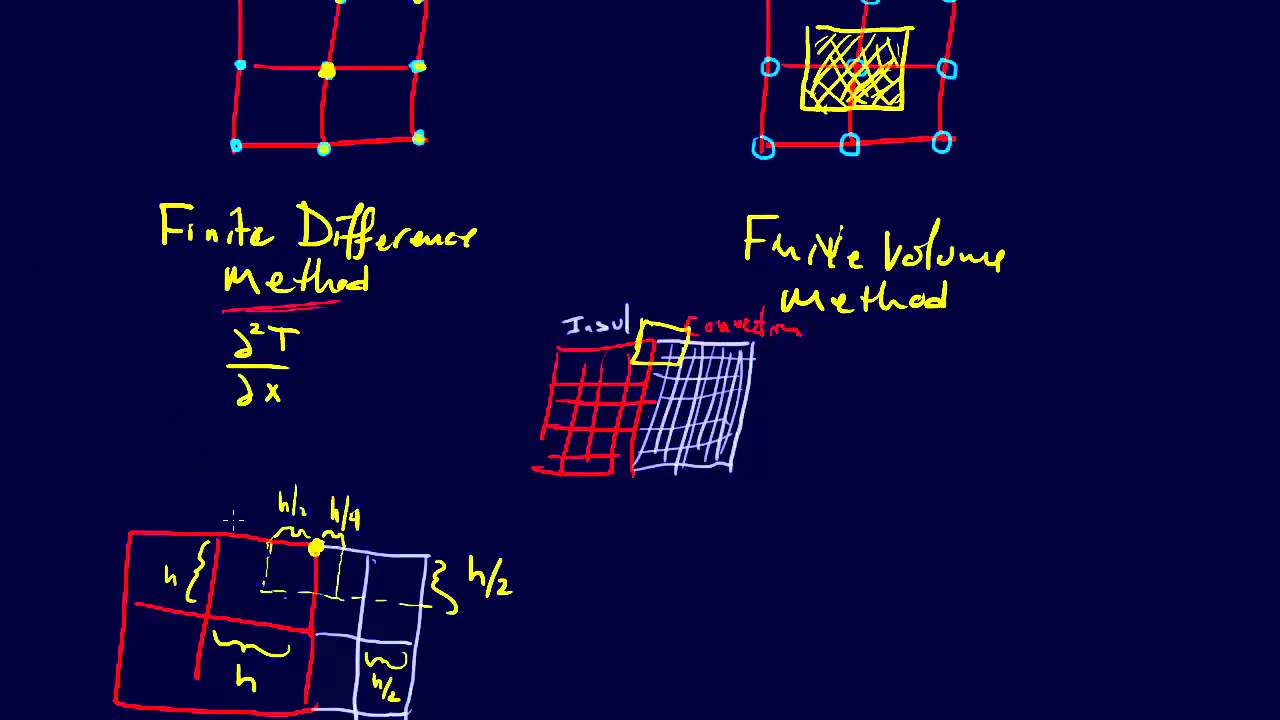 Finite Difference
Method
∂²T
∂x
Finite Volume
Method
Insul
Convection
h/2
h/4
h
h/2
h
h/2